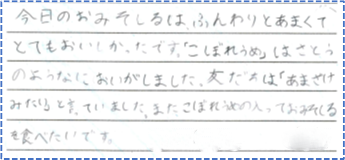 今日のおみそしるは、ふんわりとあまくて
とてもおいしかったです。「こぼれうめ」はさとう
のようなにおいがしました。友だちは「あまざけ
みたい」と言っていました。またこぼれうめの入っておみそしる
を食べたいです。